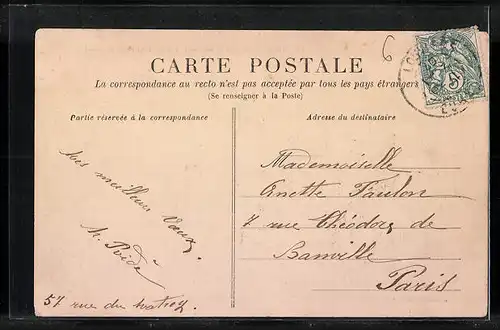 6
CARTE POSTALE
La correspondance au recto n'est pas acceptée par tous les pays étrangers
(Se renseigner à la Poste)
Partie réservée à la correspondance
Adresse du destinataire
meilleurs Vœux.
57 rue du
Mademoiselle
Ginette Faulon
7 rue Théodore de
Banville
Paris